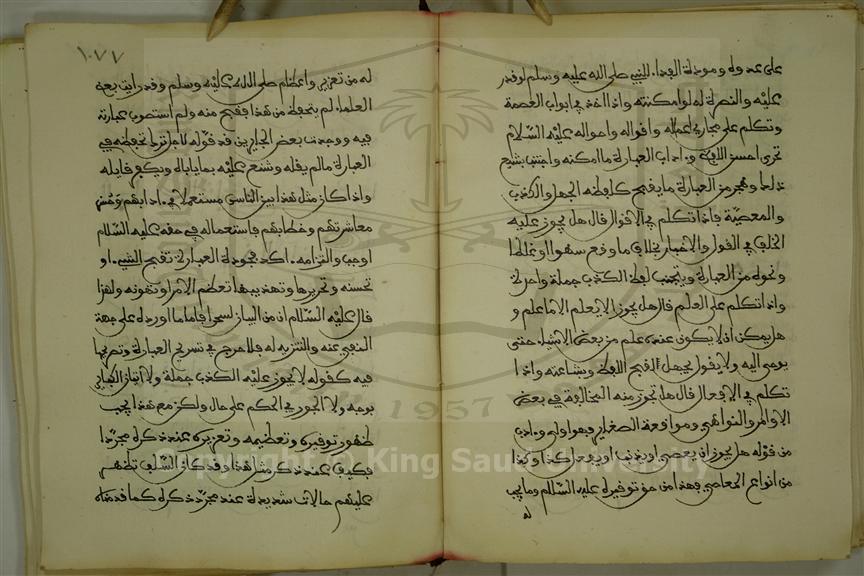 على عدوه ومودة الفداء للنبي صلى الله عليه وسلم لو قدر
عليه والنصرة له لو امكنته واذا اخذ في ابواب العصمة
وتكلم على مجاري اعماله واقواله واحواله عليه السلام
تحرى احسن اللفظ وءاداب العبارة ما امكنه واجتنب بشيع
ذلك وهجر من العبارة ما يقبح كلفظة الجهل والكذب
والمعصية فاذا تكلم في الاقوال قال هل يجوز عليه
الخلف في القول والاخبار بخلاف ما وقع سهوا او غلطا
ونحوه من العبارة ويتجنب لفظ الكذب جملة واحدة
واذا تكلم على العلم قال هل يجوز الا يعلم الا ما علم و
هل يمكن ان لا يكون عنده علم من بعض الاشياء حتى
يوحى اليه ولا يقول يجهل لقبح اللفظ وبشاعته واذا
تكلم في الافعال قال هل تجوز منه المخالفة في بعض
الاوامر والنواهي ومواقعة الصغاير فهو اولى وءادب
من قوله هل يجوز ان يعصي او يذنب او يفعل كذا وكذا
من انواع المعاصي فهذا من حق توقيره عليه السلام وما يجب
له
١٠٧٧
له من تعزير واعظام صلى الله عليه وسلم وقد رايت بعض
العلماء لم يتحفظ من هذا فقبح منه ولم استصوب عبارته
فيه ووجدت بعض الجايرين قد قوله لاجل ترك تحفظه في
العبارة ما لم يقله وشنع عليه بما ياباه ويكفر قايله
واذا كان مثل هذا بين الناس مستعملا في ءادابهم وحسن
معاشرتهم وخطابهم فاستعماله في حقه عليه السلام
اوجب والتزامه ءاكد فجودة العبارة تقبح الشيء او
تحسنه وتحريرها وتهذيبها تعظم الامر او تهونه ولهذا
قال عليه السلام ان من البيان لسحرا فاما ما اورده على جهة
النفي عنه والتنزيه له فلا حرج في تسريح العبارة وتصريحها
فيه كقوله لا يجوز عليه الكذب جملة ولا اتيان الكباير
بوجه ولا الجور في الحكم على حال ولكن مع هذا يجب
ظهور توقيره وتعظيمه وتعزيره عند ذكره مجردا
فكيف عند ذكر مثل هذا وقد كان السلف تظهر
عليهم حالات شديدة عند مجرد ذكره كما قدمناه
Copyright © King Saud University
1957